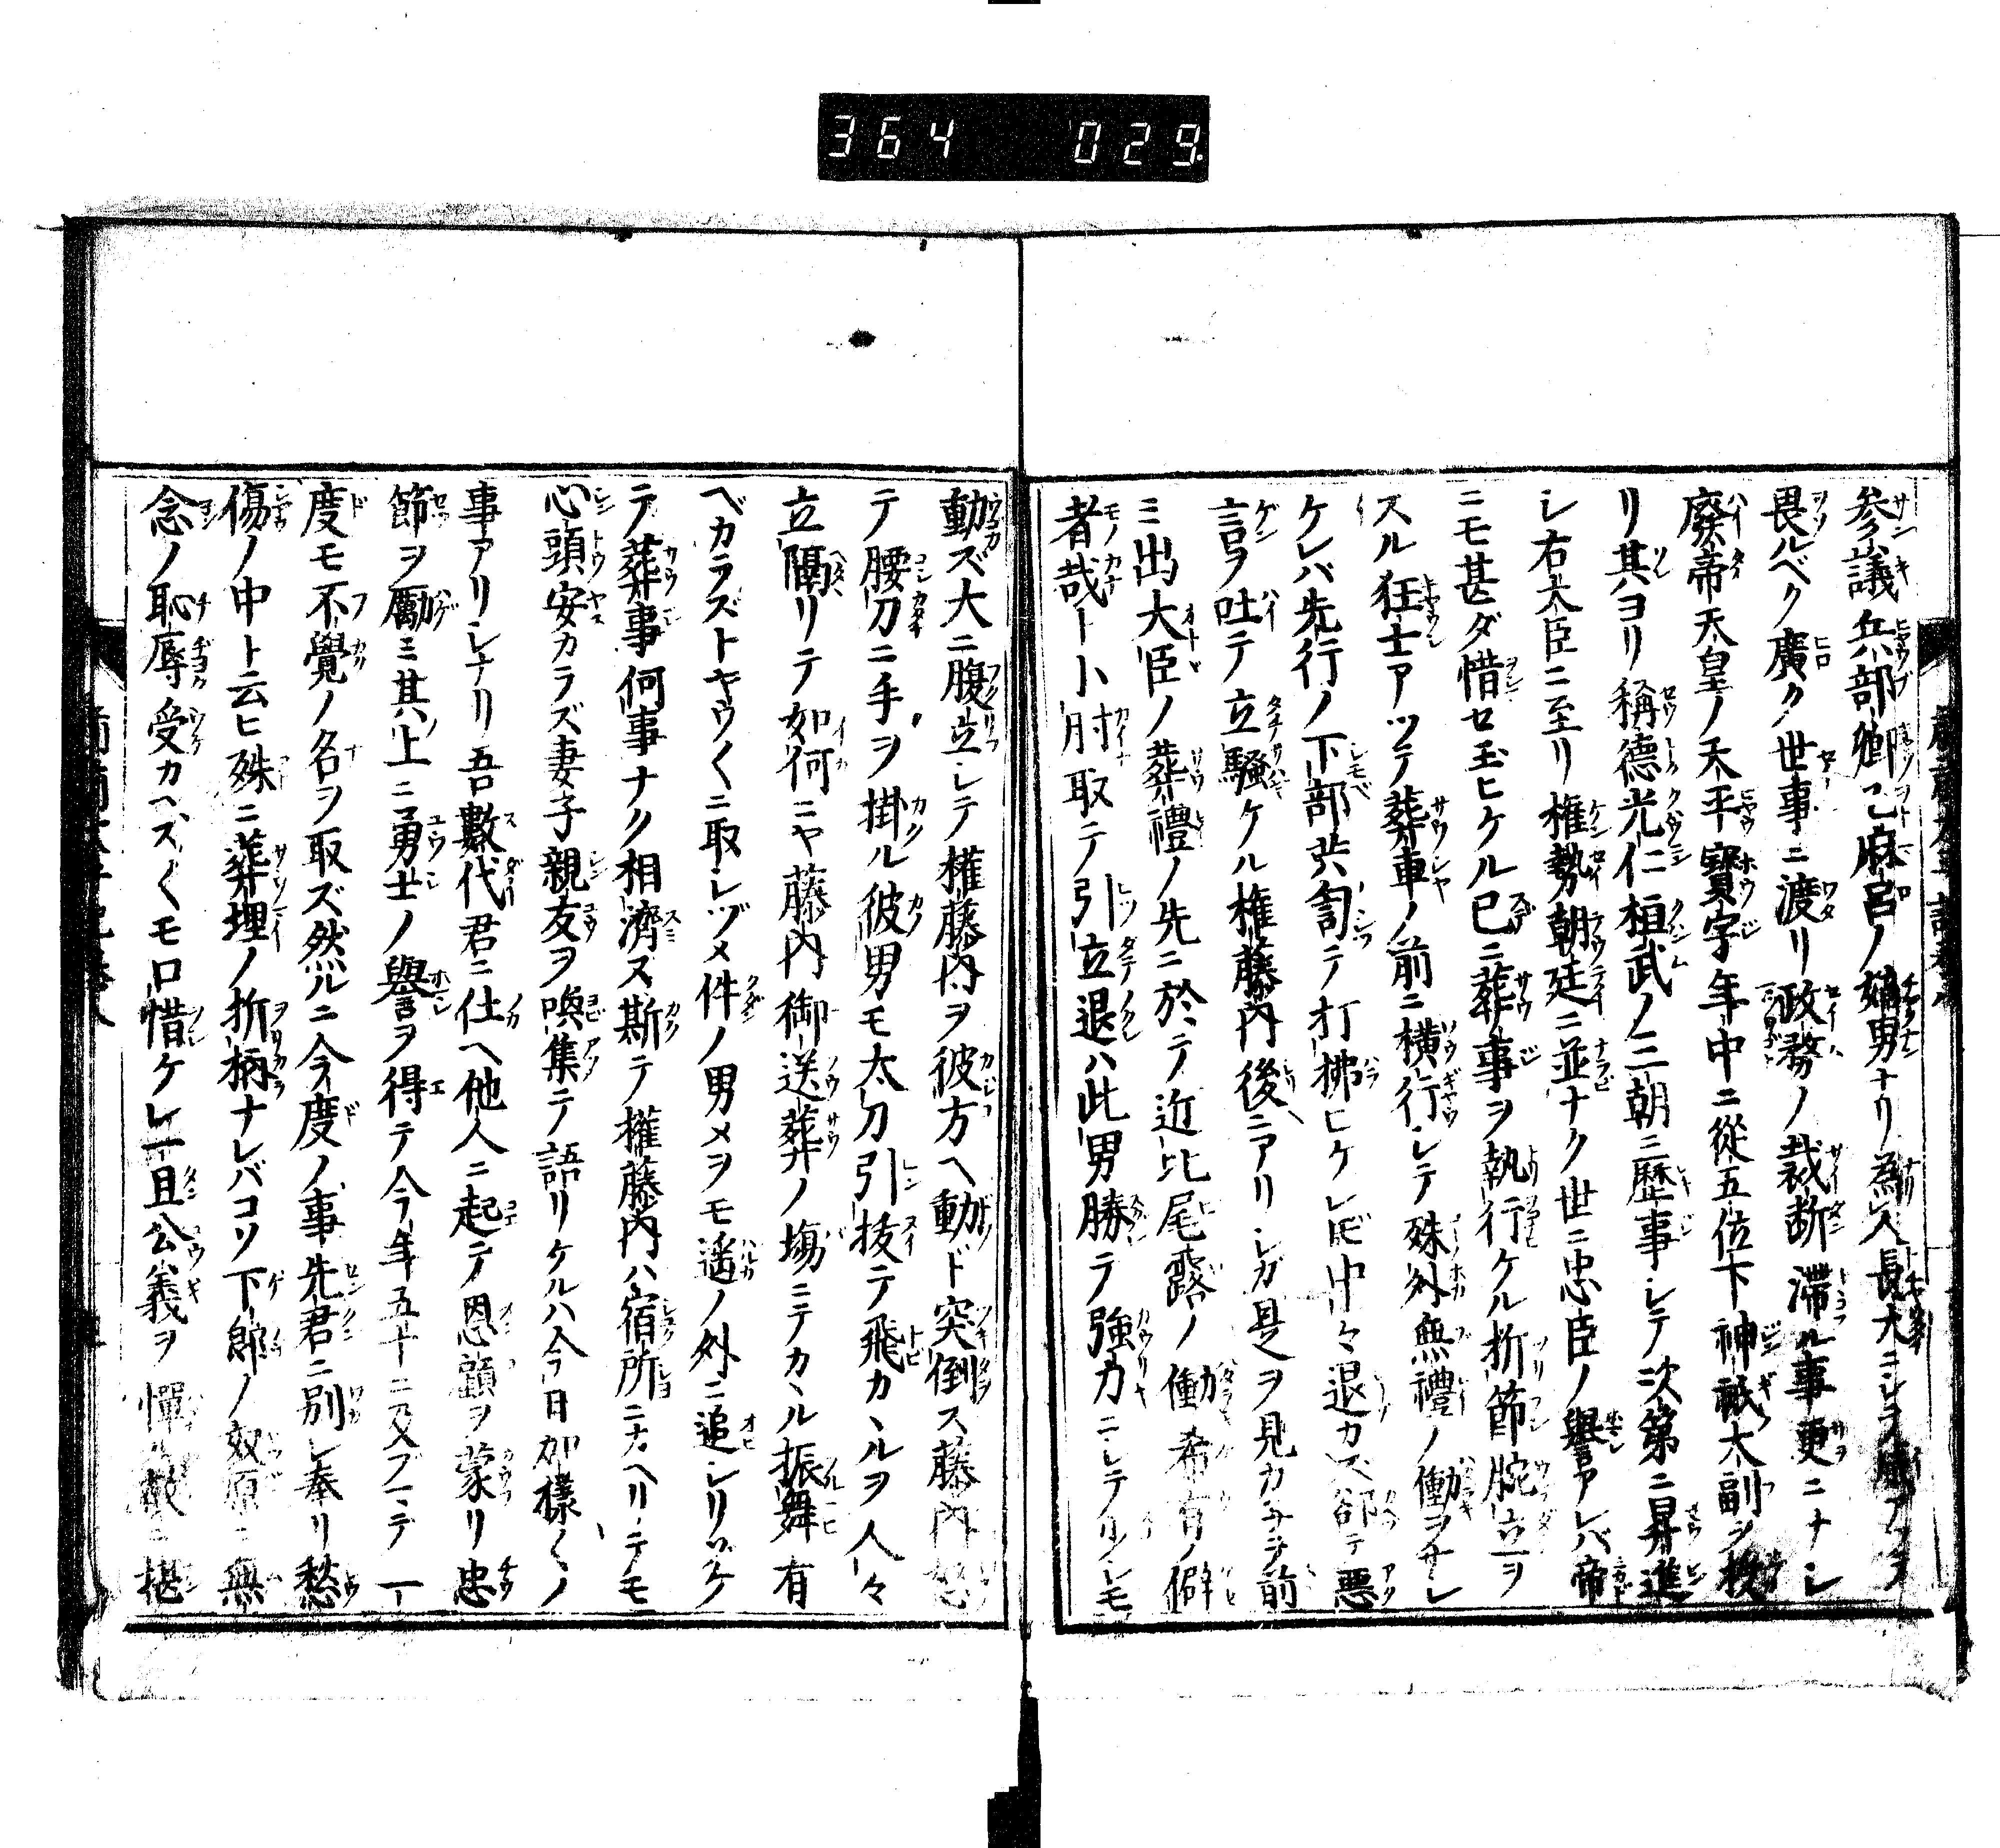 364 029.
参議兵部卿乙麻呂ノ嫡男ナリ為人長大ニシテ威アツヲ
畏ルベク廣ク世事ニ渡リ政務ノ裁断滞ル事更ニナシ
廢帝天皇ノ天平寶字年中ニ從五位下神祇大副ヲ授
リ其ヨリ稱德光仁桓武ノ三朝ニ歷事シテ次第ニ昇進
シ右大臣ニ至リ権勢朝廷ニ並ナク世ニ忠臣ノ譽アレバ帝
ニモ甚ダ惜セ玉ヒケル已ニ葬事ヲ執行ケル折節腕立ヲ
スル狂士アツテ葬車ノ前ニ横行シテ殊外無禮ノ働ヲナシ
ケレバ先行ノ下部共訇テ打拂ヒケレ𪜈中々退カズ却テ悪
言ヲ吐テ立騒ケル権藤内後ニアリシガ是ヲ見カネテ前
ミ出大臣ノ葬禮ノ先ニ於テ近比尾露ノ働希有ノ僻
者哉ト小肘取テ引立退ハ此男勝テ強力ニシテ少シモ
動ズ大ニ腹立シテ権藤内ヲ彼方ヘ動ド突倒ス藤内怒
テ腰刀ニ手ヲ掛ル彼男モ太刀引抜テ飛カヽルヲ人々
立隔リテ如何ニヤ藤内御送葬ノ塲ニテカヽル振舞有
ベカラズトヤウ〱ニ取シヅメ件ノ男メヲモ遥ノ外ニ追シリゾケ
テ葬事何事ナク相濟ヌ斯テ権藤内ハ宿所ニカヘリテモ
心頭安カラズ妻子親友ヲ喚集テ語リケルハ今日加様〱ノ
事アリシナリ吾數代君ニ仕ヘ他人ニ起テ恩顧ヲ蒙リ忠
節ヲ勵ミ其上ニ勇士ノ譽ヲ得テ今年五十ニ及ブマデ一
度モ不覺ノ名ヲ取ズ然ルニ今度ノ事先君ニ別レ奉リ愁
傷ノ中ト云ヒ殊ニ葬埋ノ折柄ナレバコソ下郎ノ奴原ニ無
念ノ恥辱受カヘス〲モ口惜ケレ一旦公義ヲ憚リ敵ニ堪